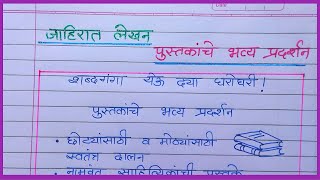 जाहिरात लेखन
पुस्तकांचे भव्य प्रदर्शन
शब्दगंगा येऊ द्या घरोघरी!
पुस्तकांचे भव्य प्रदर्शन
• छोट्यांसाठी व मोठ्यांसाठी
स्वतंत्र दालन
• नामवंत साहित्यिकांची पुस्तके